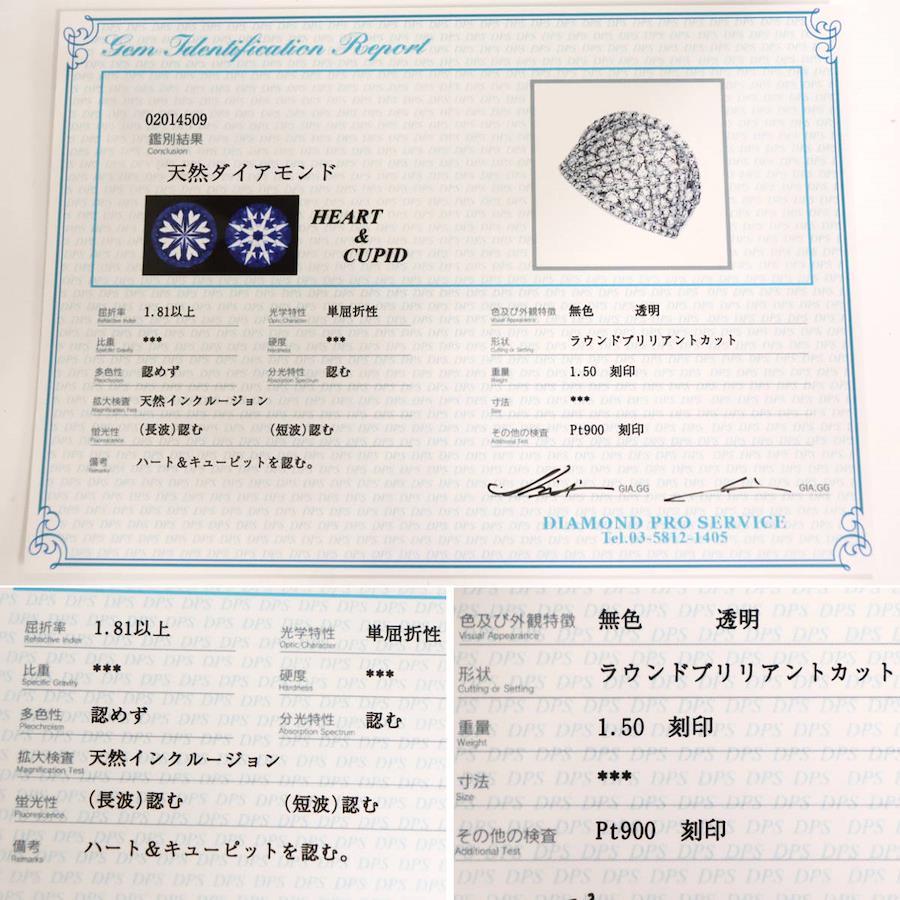 Gem Identification Report
02014509
鑑別結果
Conclusion
天然ダイアモンド
HEART
&
CUPID
屈折率 Refractive Index 1.81以上 光学特性 Optic Character 単屈折性
比重 Specific Gravity *** 硬度 Hardness ***
多色性 Pleochroism 認めず 分光特性 Absorption Spectrum 認む
拡大検査 Magnification Test 天然インクルージョン
蛍光性 Fluorescence (長波)認む (短波)認む
備考 Remarks ハート&キューピットを認む。
色及び外観特徴 Visual Appearance 無色 透明
形状 Cutting or Setting ラウンドブリリアントカット
重量 Weight 1.50 刻印
寸法 Size ***
その他の検査 Additional Test Pt900 刻印
GIA.GG GIA.GG
DIAMOND PRO SERVICE
Tel.03-5812-1405
屈折率 Refractive Index 1.81以上 光学特性 Optic Character 単屈折性
比重 Specific Gravity *** 硬度 Hardness ***
多色性 Pleochroism 認めず 分光特性 Absorption Spectrum 認む
拡大検査 Magnification Test 天然インクルージョン
蛍光性 Fluorescence (長波)認む (短波)認む
備考 Remarks ハート&キューピットを認む。
色及び外観特徴 Visual Appearance 無色 透明
形状 Cutting or Setting ラウンドブリリアントカット
重量 Weight 1.50 刻印
寸法 Size ***
その他の検査 Additional Test Pt900 刻印